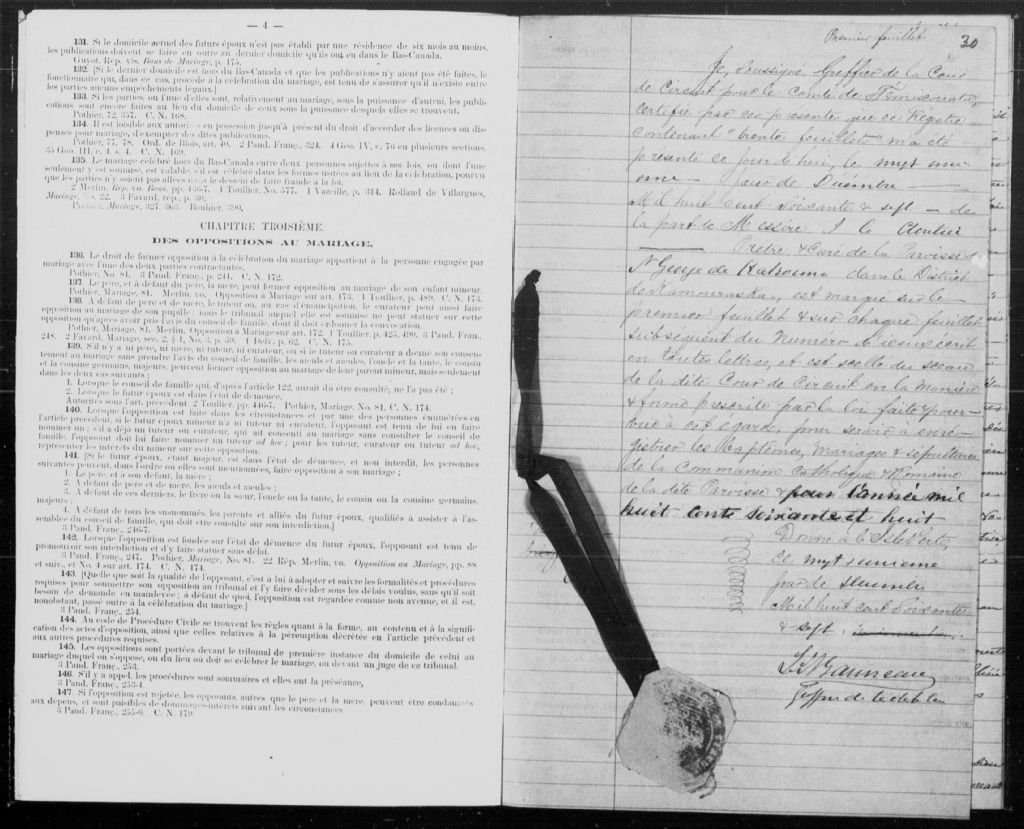 — 4 —
131. Si le domicile actuel des futurs époux n'est pas établi par une résidence de six mois au moins,
les publications doivent se faire en outre au dernier domicile qu'ils ont eu dans le Bas-Canada.
Guyot, Rép. vis. Bans de Mariage, p. 175.
132. [Si le dernier domicile est hors du Bas-Canada et que les publications n'y aient pas été faites, le
fonctionnaire qui, dans ce cas, procède à la célébration du mariage, est tenu de s'assurer qu'il n'existe entre
les parties aucuns empêchements légaux.]
133. Si les parties, ou l'une d'elles sont, relativement au mariage, sous la puissance d'autrui, les publi-
cations sont encore faites au lieu du domicile de ceux sous la puissance desquels elles se trouvent.
Pothier, 72, 357. C. N. 168.
134. Il est loisible aux autorités en possession jusqu'à présent du droit d'accorder des licences ou dis-
penses pour mariage, d'exempter des dites publications.
Pothier, 77, 78. Ord. de Blois, art. 40. 2 Pand. Franç., 324. 4 Geo. IV, c. 76 en plusieurs sections.
35 Geo. III, c. 4, s. 4. C. N. 169.
135. Le mariage célébré hors du Bas-Canada entre deux personnes sujettes à ses lois, ou dont l'une
seulement y est soumise, est valable, s'il est célébré dans les formes usitées au lieu de la célébration, pourvu
que les parties n'y soient pas allées dans le dessein de faire fraude à la loi.
2 Merlin, Rép. vo. Bans, pp. 1 Toullier, No. 577. 1 Vazeille, p. 314. Rolland de Villargues,
Mariage, No. 22. 3 Favard, rep., p. 30.
Pothier, Mariage, 327, 363. Bouhier, 390,
CHAPITRE TROISIÈME.
DES OPPOSITIONS AU MARIAGE.
136. Le droit de former opposition à la célébration du mariage appartient à la personne engagée par
mariage avec l'une des deux parties contractantes.
Pothier, No. 81. 3 Pand. Franç., p. 241. C. N. 172.
137. Le père, et à défaut du père, la mère, peut former opposition au mariage de son enfant mineur.
Pothier, Mariage, 81. Merlin, vo. Opposition à Mariage sur art. 173. 1 Toullier, p. 489. C. N. 173.
138. A défaut de père et de mère, le tuteur ou, au cas d'émancipation, le curateur peut aussi faire
opposition au mariage de son pupille; mais le tribunal auquel elle est soumise ne peut statuer sur cette
opposition qu'après avoir pris l'avis du conseil de famille, dont il doit ordonner la convocation.
Pothier, Mariage, 81. Merlin, Opposition à Mariage sur art. 172. 1 Toullier, p. 425, 490. 3 Pand. Fran.,
248. 2 Favard, Mariage, sec. 2, § 1, No. 3, p. 59. 1 Delv. p. 62. C. N. 175.
139. S'il n'y a ni père, ni mère, ni tuteur, ni curateur, ou si le tuteur ou curateur a donné son consen-
tement au mariage sans prendre l'avis du conseil de famille, les aïeuls et aïeules, l'oncle et la tante, le cousin
et la cousine germains, majeurs, peuvent former opposition au mariage de leur parent mineur, mais seulement
dans les deux cas suivants;
1. Lorsque le conseil de famille qui, d'après l'article 122, aurait dû être consulté, ne l'a pas été;
2. Lorsque le futur époux est dans l'état de démence.
Autorités sous l'art. précédent. 2 Toullier, pp. Pothier, Mariage, No. 81. C. N. 174.
140. Lorsque l'opposition est faite dans les circonstances et par une des personnes énumérées en
l'article précédent, si le futur époux mineur n'a ni tuteur ni curateur, l'opposant est tenu de lui en faire
nommer un; s'il a déjà un tuteur ou curateur, qui ait consenti au mariage sans consulter le conseil de
famille, l'opposant doit lui faire nommer un tuteur ad hoc; pour les tuteur, curateur ou tuteur ad hoc,
représenter les intérêts du mineur sur cette opposition.
141. [Si le futur époux, étant majeur, est dans l'état de démence, et non interdit, les personnes
suivantes peuvent, dans l'ordre ou elles sont mentionnées, faire opposition à son mariage;
1. Le père, et à son défaut, la mère;
2. A défaut de père et de mère, les aïeuls et aïeules;
3. A défaut de ces derniers, le frère ou la sœur, l'oncle ou la tante, le cousin ou la cousine germains,
majeurs;
4. A défaut de tous les susnommés, les parents et alliés du futur époux, qualifiés à assister à l'as-
semblée du conseil de famille, qui doit être consulté sur son interdiction.]
3 Pand. Franç., 246-7.
142. Lorsque l'opposition est fondée sur l'état de démence du futur époux, l'opposant est tenu de
promouvoir son interdiction et d'y faire statuer sans délai.
3 Pand. Franç., 247. Pothier, Mariage, No. 81. 22 Rép. Merlin, vo. Opposition au Mariage, pp. 88
et suiv., et No. 4 sur art. 174. C. N. 174.
143. [Quelle que soit la qualité de l'opposant, c'est à lui à adopter et suivre les formalités et procédures
requises pour soumettre son opposition au tribunal et l'y faire décider sous les délais voulus, sans qu'il soit
besoin de demande en mainlevée; à défaut de quoi, l'opposition est regardée comme non avenue, et il est,
nonobstant, passé outre à la célébration du mariage.]
3 Pand. Franç., 254.
144. Au code de Procédure Civile se trouvent les règles quant à la forme, au contenu et à la signifi-
cation des actes d'opposition, ainsi que celles relatives à la péremption décrétée en l'article précédent et
aux autres procédures requises.
145. Les oppositions sont portées devant le tribunal de première instance du domicile de celui au
mariage duquel on s'oppose, ou du lieu où doit se célébrer le mariage, ou devant un juge de ce tribunal.
3 Pand. Franç., 253.
146. S'il y a appel, les procédures sont sommaires et elles ont la préséance,
3 Pand. Franç., 253-4.
147. Si l'opposition est rejetée, les opposants, autres que le père et la mère, peuvent être condamnés
aux dépens, et sont passibles de dommages-intérêts suivant les circonstances.
3 Pand. Franç., 255-6. C. N. 179.
Premier feuillet 30
Je, soussigné, Greffier de la Cour
de Circuit pour le Comté de Témiscouata,
certifie par ces présentes que ce Registre
contenant "trente feuillets" m'a été
présenté ce jour de hui, le vingt uni
eme — jour de Décembre —
Mil huit cent soixante & sept — de
la part de Messire J le Cloutier
Prêtre & Curé de la Paroisse
St George de Kakouna dans le District
de Kamouraska, est marqué sur le
premier feuillet & sur chaque feuillet
subséquent du Numéro écrit
en toutes lettres, et est scellé du sceau
de la dite Cour de Circuit en la manière
& forme prescrite par la loi faite & pour-
vue à cet égard, pour servir à enré-
gistrer les Baptêmes, Mariages & Sépultures
de la Communion Catholique & Romaine
de la dite Paroisse & pour l'année mil
huit cents soixante et huit
Donné à l'Isle Verte,
ce vingt unieme
jour de Décembre
Mil huit cent soixante
& sept.